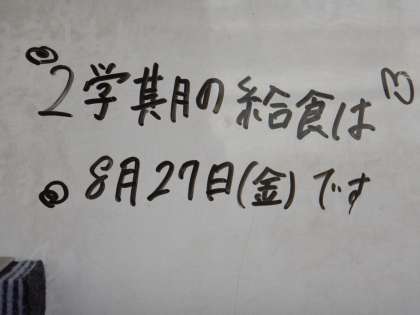 2学期の給食は
8月27日(金)です